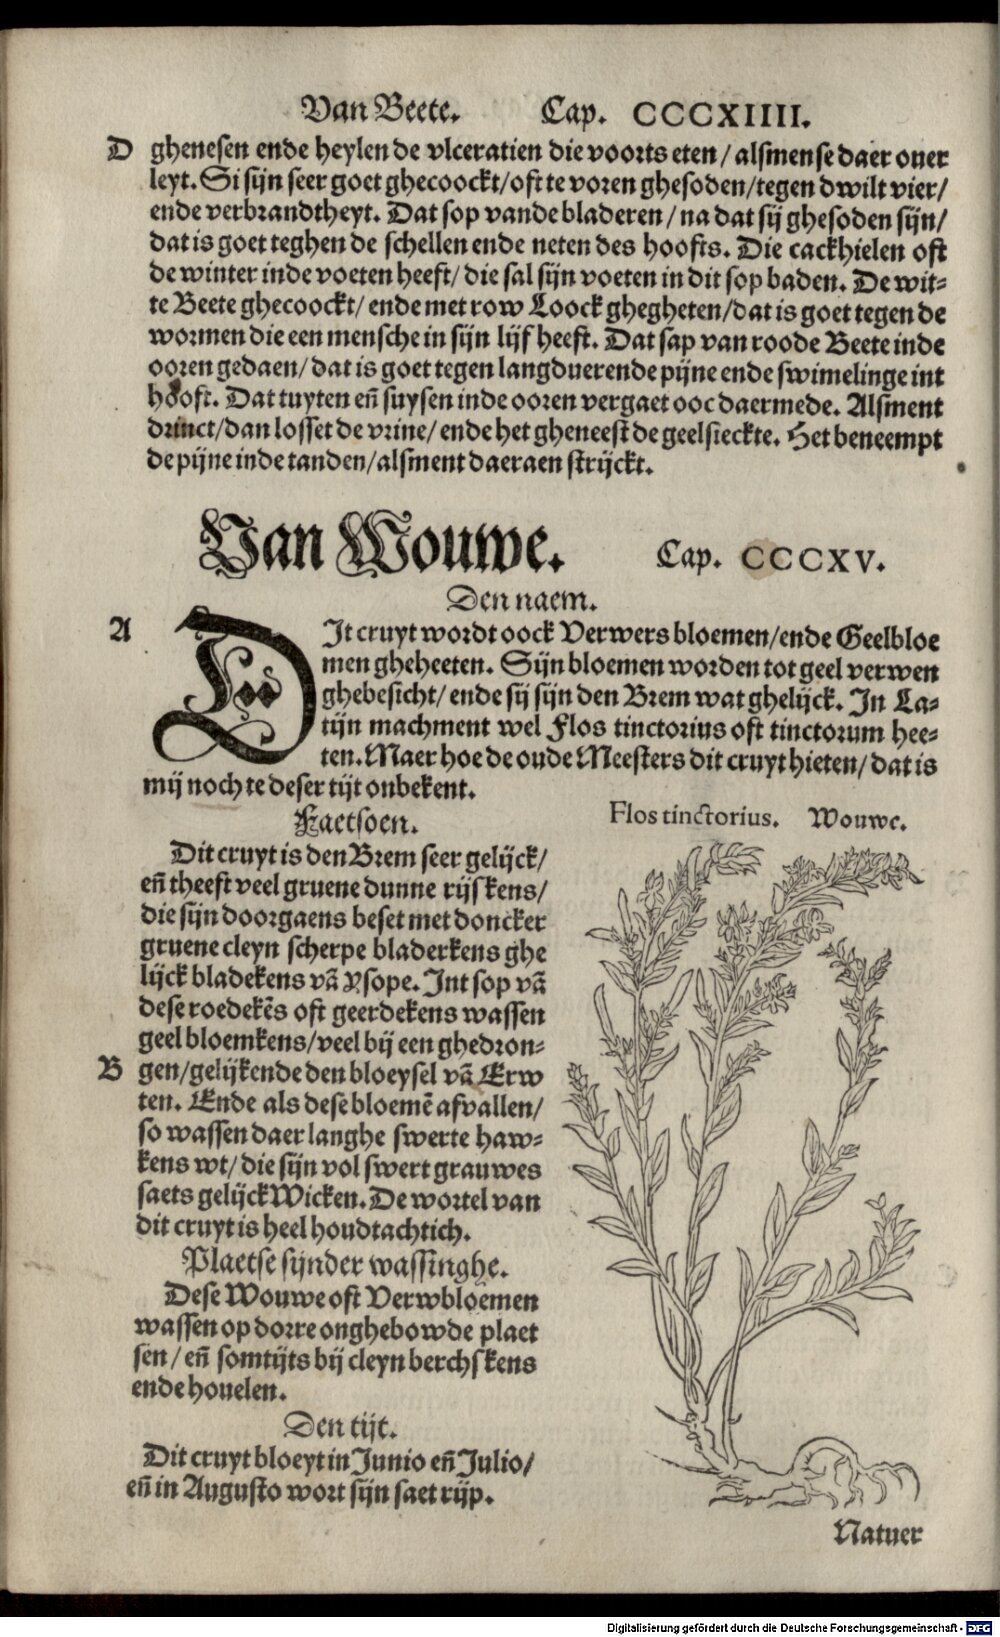 Van Beete. Cap. CCCXIIII.
D ghenesen ende heylen de vlceratien die voorts eten / alsmense daer ouer
leyt. Si sijn seer goet ghecoockt/ oft te voren ghesoden/ tegen dwilt vier/
ende verbrandtheyt. Dat sop vande bladeren / na dat sij ghesoden sijn/
dat is goet teghen de schellen ende neten des hoofts. Die cackhielen oft
de winter inde voeten heeft/ die sal sijn voeten in dit sop baden. De wit-
te Beete ghecoockt/ ende met row Loock ghegheten/ dat is goet tegen de
wormen die een mensche in sijn lijf heeft. Dat sap van roode Beete inde
ooren gedaen/ dat is goet tegen langduerende pijne ende swimelinge int
hooft. Dat tuyten eñ suysen inde ooren vergaet ooc daermede. Alsment
drinct/ dan losset de vrine/ ende het gheneest de geelsieckte. Het beneempt
de pijne inde tanden/ alsment daeraen strijckt.
Van Wouwe. Cap. CCCXV.
Den naem.
A DIt cruyt wordt oock Verwers bloemen/ ende Geelbloe
men gheheeten. Sijn bloemen worden tot geel verwen
ghebesicht/ ende sij sijn den Brem wat ghelijck. In La-
tijn machment wel Flos tinctorius oft tinctorum hee-
ten. Maer hoe de oude Meesters dit cruyt hieten/ dat is
mij noch te deser tijt onbekent.
Faetsoen.
Dit cruyt is den Brem seer gelijck/
eñ theeft veel gruene dunne rijskens/
die sijn doorgaens beset met doncker
gruene cleyn scherpe bladerkens ghe
lijck bladekens vā Ysope. Int sop vā
dese roedekēs oft geerdekens wassen
geel bloemkens/ veel bij een ghedron-
B gen/ gelijkende den bloeysel vā Erw
ten. Ende als dese bloemē afvallen/
so wassen daer langhe swerte haw-
kens wt/ die sijn vol swert grauwes
saets gelijck Wicken. De wortel van
dit cruyt is heel houdtachtich.
Plaetse sijnder wassinghe.
Dese Wouwe oft Verwbloemen
wassen op dorre onghebowde plaet
sen / eñ somtijts bij cleyn berchskens
ende houelen.
Den tijt.
Dit cruyt bloeyt in Junio eñ Julio/
eñ in Augusto wort sijn saet rijp.
Flos tinctorius. Wouwe.
Natuer
Digitalisierung gefördert durch die Deutsche Forschungsgemeinschaft - DFG